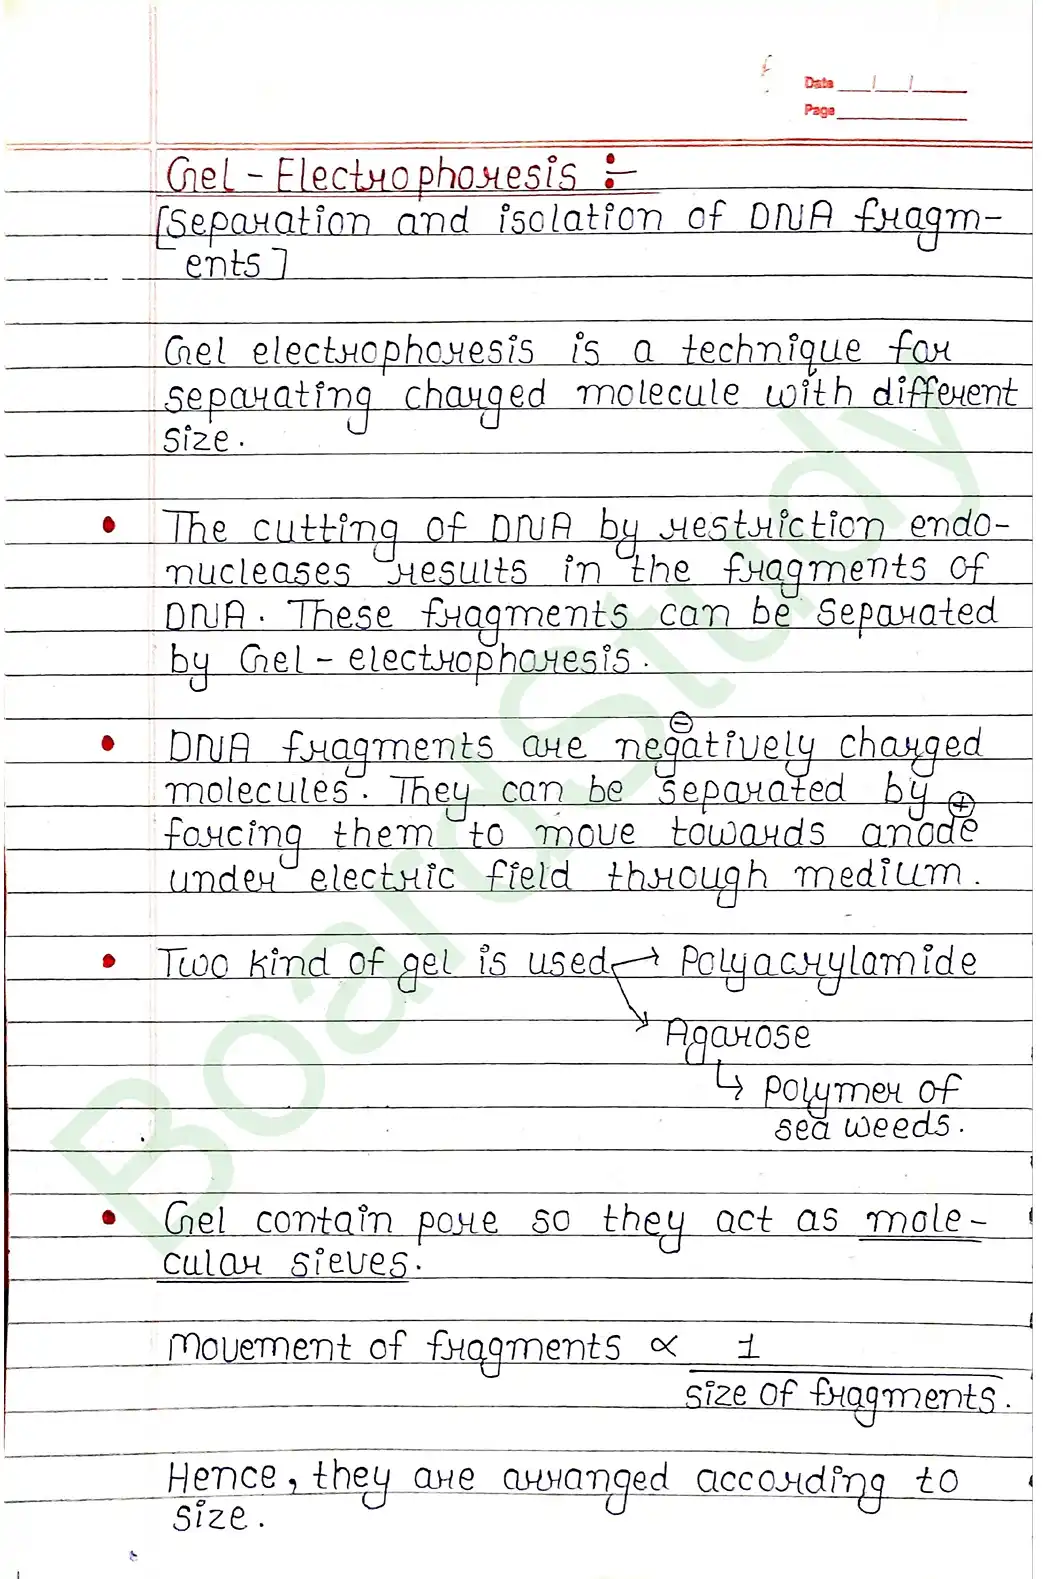 Date __/__/__
Page
Gel - Electrophoresis :-
[Separation and isolation of DNA fragm-
ents]
Gel electrophoresis is a technique for
separating charged molecule with different
size.
• The cutting of DNA by restriction endo-
nucleases results in the fragments of
DNA. These fragments can be separated
by Gel - electrophoresis.
⊖
• DNA fragments are negatively charged
molecules. They can be separated by
⊕
forcing them to move towards anode
under electric field through medium.
• Two kind of gel is used → Polyacrylamide
↘ Agarose
↳ polymer of
sea weeds.
• Gel contain pore so they act as mole-
cular sieves.
Movement of fragments ∝ 1
size of fragments.
Hence, they are arranged according to
size.
BoardStudy